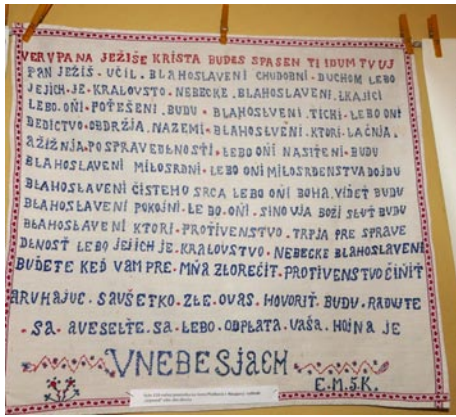 VERVPANA JEŽIŠE KRISTA BUDEŠ SPASEN TI IDUM TVUJ
PAN JEŽIŠ · UČIL · BLAHOSLAVENÍ CHUDOBNÍ · DUCHOM LEBO
JEJICH · JE · KRALOVSTO · NEBECKE · BLAHOSLAVENÍ · LKAJÍCÍ
LEBO · OŇI · POŤEŠENÍ · BUDU · BLAHOSLVENÍ · TICHI · LEBO ONI
DEDICTVO · OBDRŽJA · NAZEMI · BLAHOSLVENÍ · KTORI · LAČNJA ·
AŽIŽNJA · PO SPRAVEDLNOSŤI · LEBO ONI NASIŤENI · BUDU
BLAHOSLAVENI MILOSRDNI · LEBO ONI MILOSRDENSTVA DOJDU
BLAHOSLAVENÍ ČISTEHO SRCA LEBO OŇI BOHA · VIĎEŤ BUDU
BLAHOSLAVENÍ POKOJNI · LE BO · OŇI · SINO VJA BOŽÍ SLUŤ BUDU
BLAHOSLAVENÍ KTORI · PROŤIVENSTVO · TRPJA PRE SPRAVE
DLNOSŤ LEBO JEJICH JE · KRALOVSTVO · NEBECKE BLAHOSLAVENÍ
BUĎEŤE KEĎ VAM PRE · MŇA ZLOREČIŤ · PROŤIVENSTVO ČIŇIŤ
ARUHAJUC · SAVŠETKO · ZLE · OVAS · HOVORIŤ · BUDU · RADUJTE
· SA · AVESELŤE · SA · LEBO · ODPLATA · VAŠA · HOJNA JE
VNEBESJACH
E.M.Š.K.